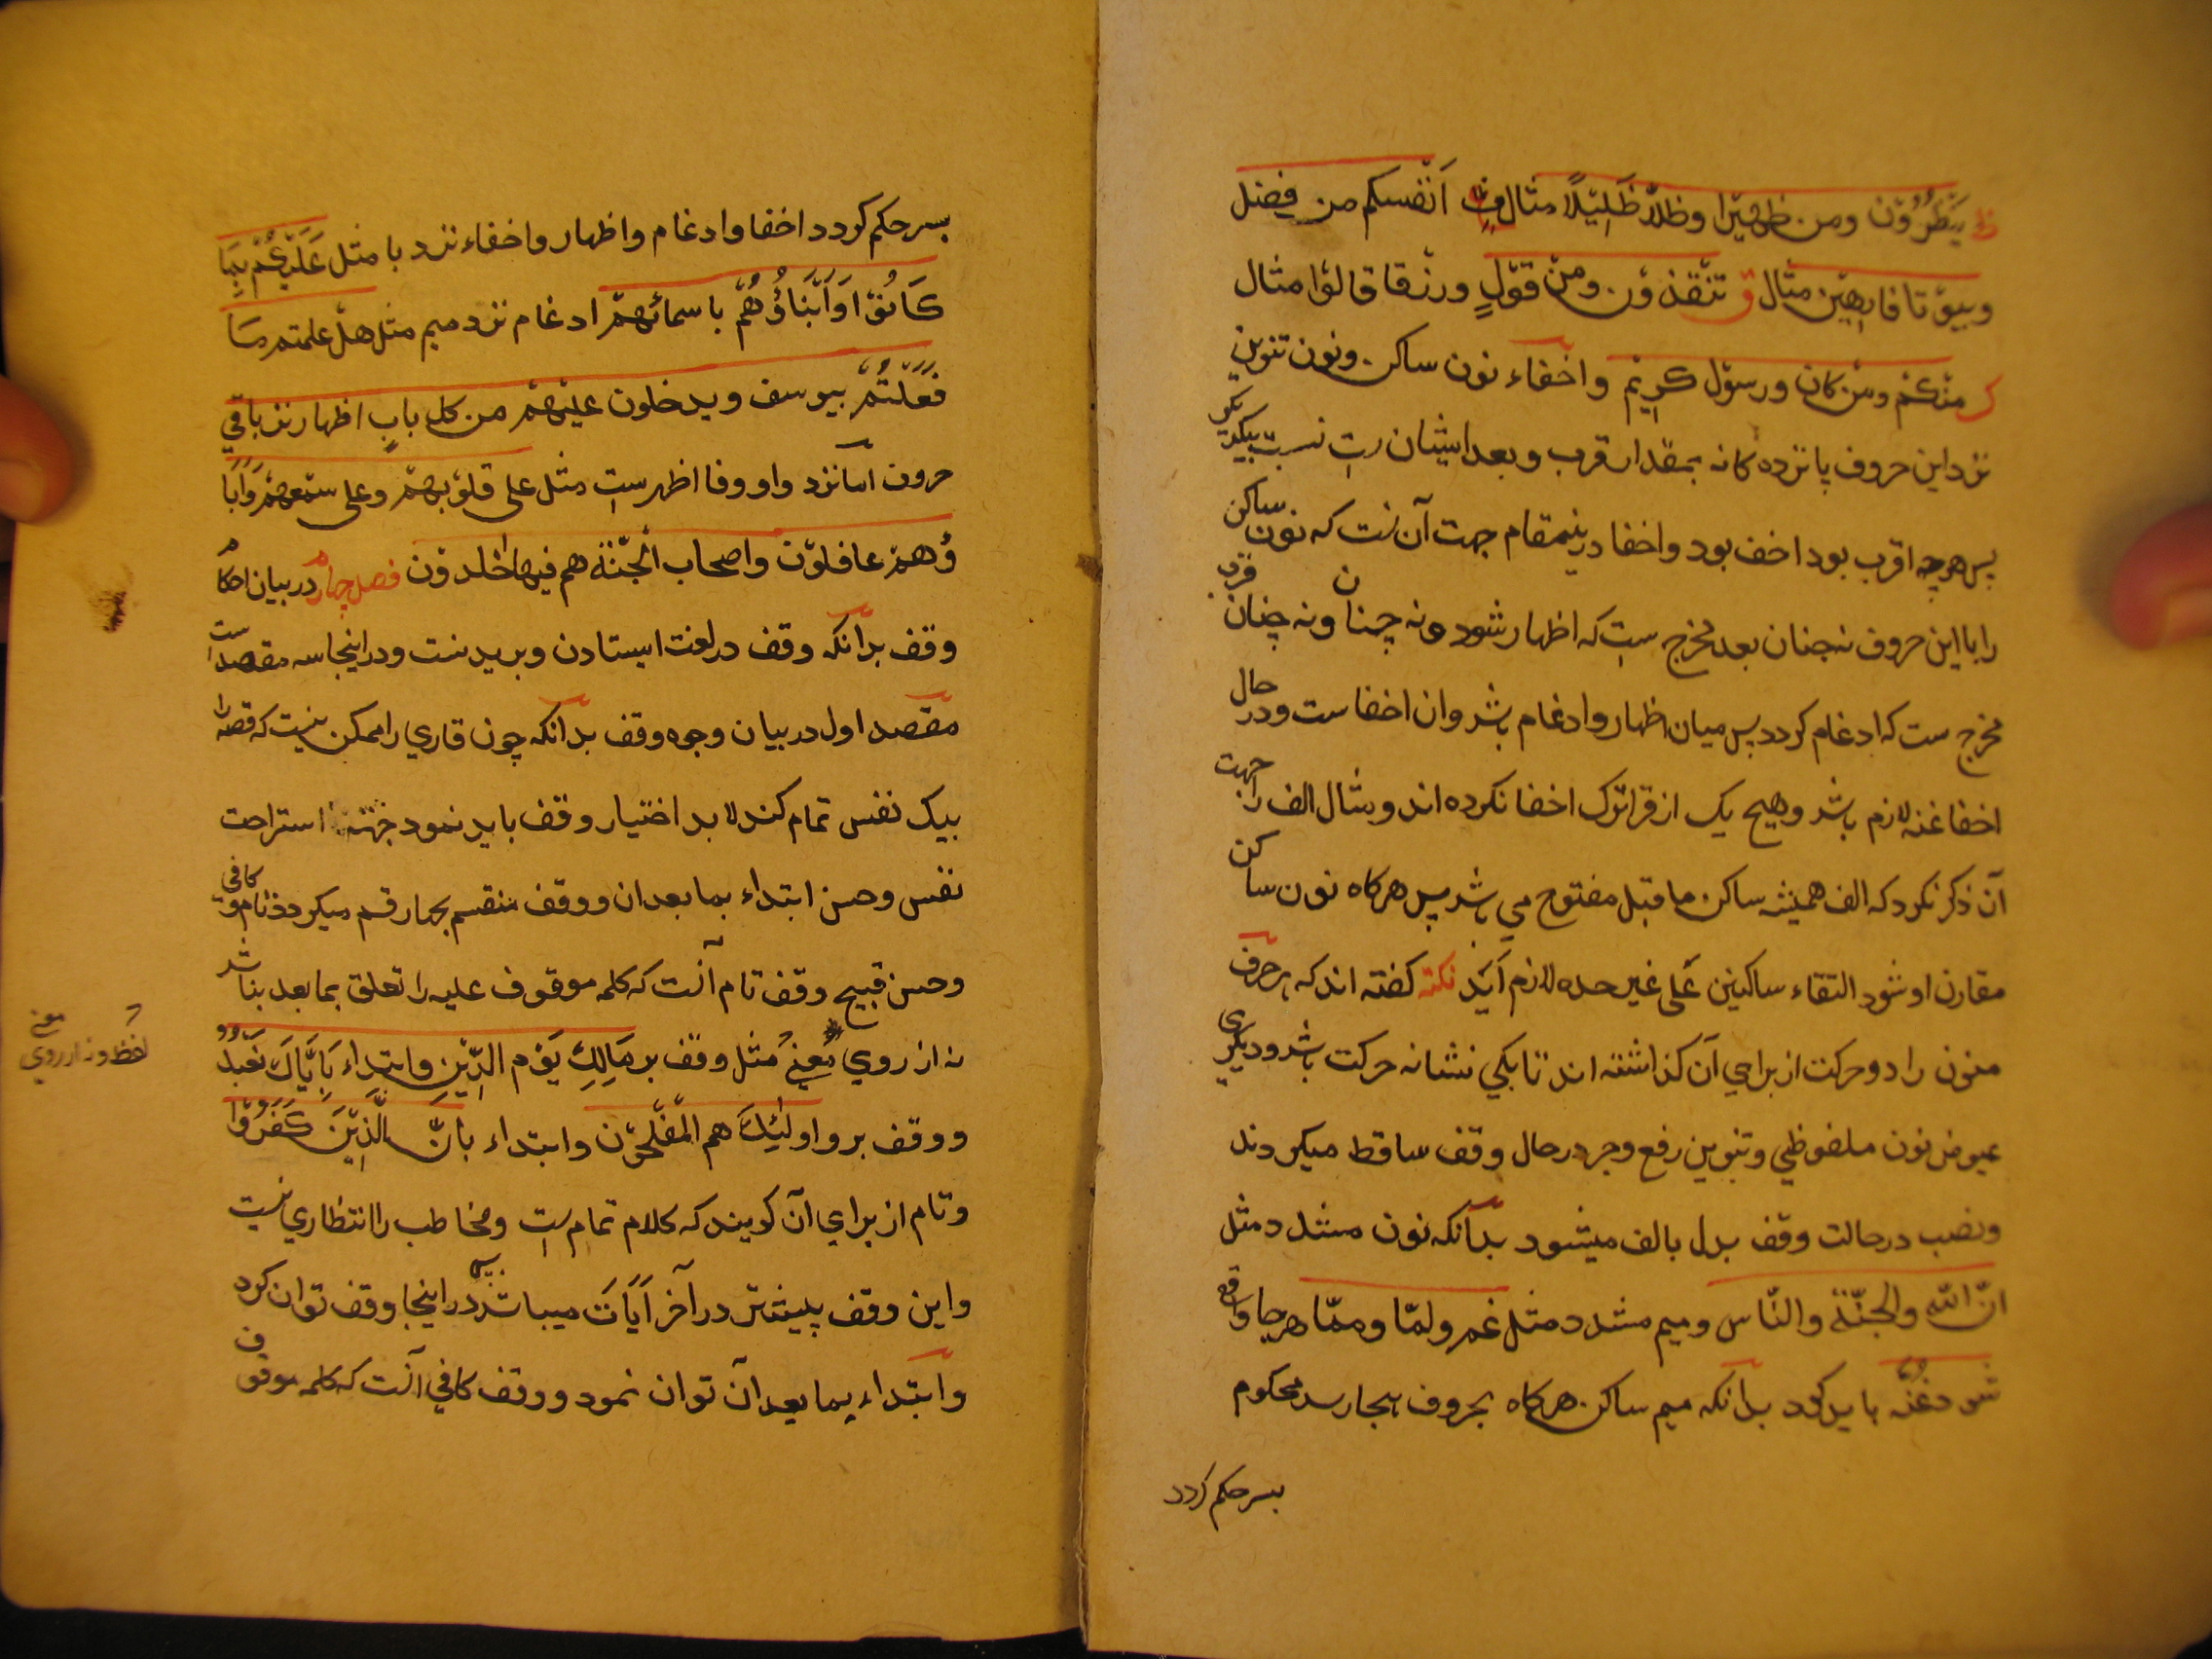 ظ ینظرون ومن ظهیرا وظلا ظلیلا مثال ف انفسکم من فضل
وبیوتا فارهین مثال ق تنقذون ومن قول ورزقا قالوا مثال
ک منکم ومن کان ورسول کریم واخفاء نون ساکن ونون تنوین
نزد این حروف پانزده کانه بمقدار قرب وبعد ایشان است نسبت بیکدیکر
پس هرچه اقرب بود اخف بود واخفا درینمقام جهت آن است که نون ساکن
را با این حروف نه چنان بعد مخرج ست که اظهار شود ونه چنان قرب
مخرج ست که ادغام کردد پس میان اظهار وادغام باشد وان اخفاست ودر حال
اخفا غنه لازم باشد وهیچ یک از قرا ترک اخفا نکرده اند ومثال الف را جهت
آن ذکر نکرد که الف همیشه ساکن ماقبل مفتوح می باشد پس هرکاه نون ساکن
مقارن او شود التقاء ساکنین علی غیر حده لازم آید نکته کفته اند که هر حرف
منون را دو حرکت از برای آن کذاشته اند تا یکی نشانه حرکت باشد ودیکری
عیوض نون ملفوظی وتنوین رفع وجر در حال وقف ساقط میکردند
ونصب در حالت وقف بدل بالف میشود بدآنکه نون مشدد مثل
انّ الله والجنّة والنّاس ومیم مشدد مثل غم ولمّا وممّا هرجا واقع
شود غنّه باید کرد بدانکه میم ساکن هرکاه بحروف هجا رسد محکوم
بسه حکم کردد
بسه حکم کردد اخفا وادغام واظهار واخفاء نزد با مثل علیکم بما
کانوا وابناؤهم باسمائهم ادغام نزد میم مثل هل علمتم ما
فعلتم بیوسف ویدخلون علیهم من کل باب اظهار نزد باقی
حروف اما نزد واو وفا اظهر ست مثل علی قلوبهم وعلی سمعهم وابا
ؤهم غافلون واصحاب الجنّة هم فیها خلدون فصل چهارم در بیان احکام
وقف بدآنکه وقف در لغت ایستادن وبریدنست ودر اینجا سه مقصد است
مقصد اول در بیان وجوه وقف بدآنکه چون قاری را ممکن نیست که قصه را
بیک نفس تمام کند لابد اختیار وقف باید نمود جهته استراحت
نفس وحسن ابتداء بما بعد ان ووقف منقسم بچهار قسم میکردد تام وکافی
وحسن قبیح وقف تام آنست که کلمه موقوف علیه را تعلق بما بعد نباشد
نه از روی معنی مثل وقف بر مالک یوم الدین وابتداء بایاک نعبد
لفظ ونه از روی معنی
ووقف بر واولئک هم المفلحون وابتداء بانّ الذین کفروا
وتام از برای آن کویند که کلام تمام است ومخاطب را انتظاری نیست
واین وقف بیشتر در آخر آیات میباشد پس در اینجا وقف توان کرد
وابتداء بما بعد آن توان نمود ووقف کافی آنست که کلمه موقوف